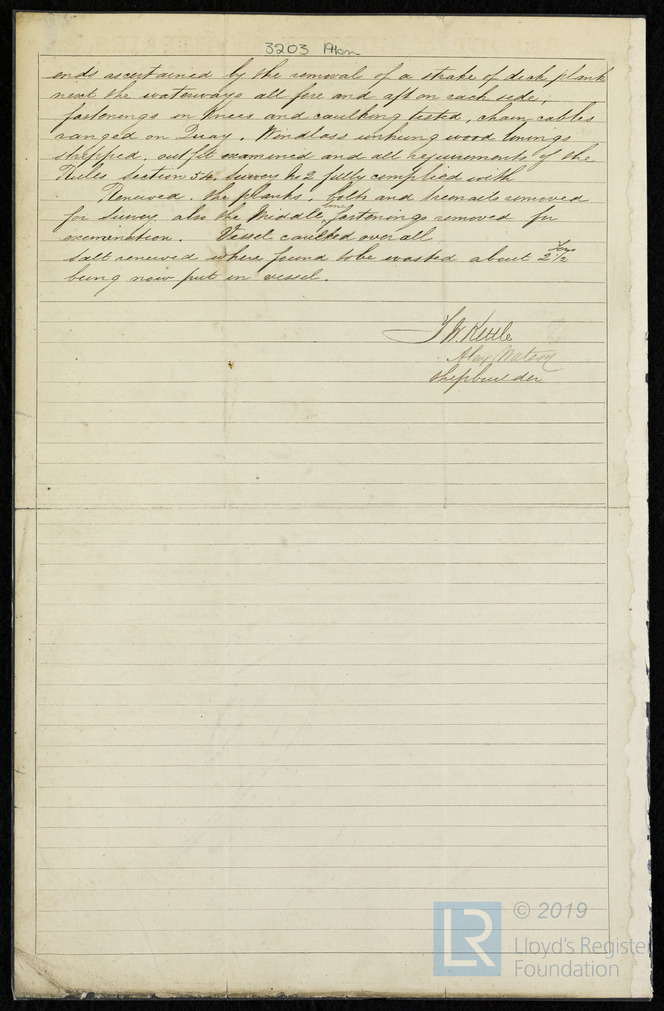 3203 Abn
ends ascertained by the removal of a strake of deck plank
next the waterways all fore and aft on each side;
fastenings in knees and caulking tested, chain cables
ranged on Quay. Windlass unhung wood linings
stripped, outfit examined and all requirements of the
Rules section 54. Survey No 2 fully complied with
Renewed. the planks, bolts and treenails removed
for survey also the middle line fastenings removed for
examination. Vessel caulked over all
Salt renewed where found to be wasted about 2 1/2 Tons
being now put in vessel.
J W Kettle
Alex Watson
Shipbuilder
LR
© 2019
Lloyd's Register
Foundation